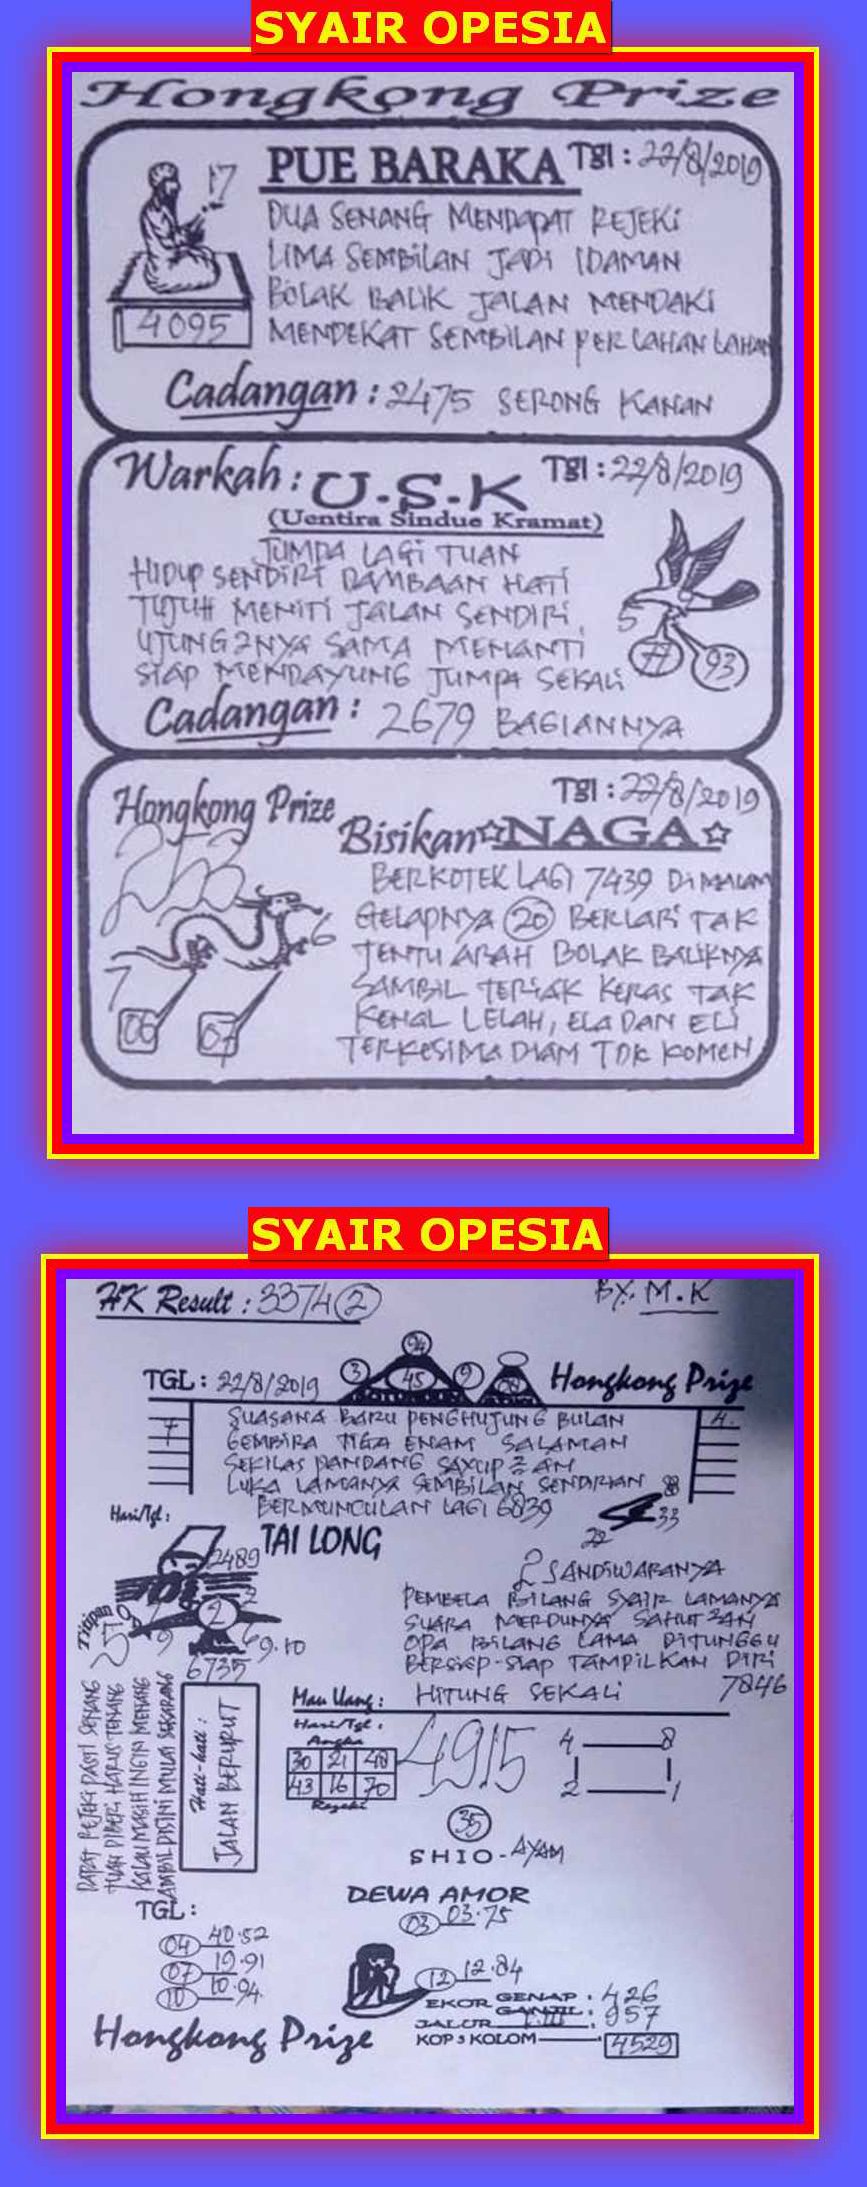 SYAIR OPESIA
Hongkong Prize
PUE BARAKA Tgl : 22/8/2019
17
DUA SENANG MENDAPAT REJEKI
LIMA SEMBILAN JADI IDAMAN
BOLAK BALIK JALAN MENDAKI
4095
MENDEKAT SEMBILAN PERLAHAN LAHAN
Cadangan : 2475 SERONG KANAN
Warkah : U.S.K Tgl : 22/8/2019
(Uentira Sindue Kramat)
JUMPA LAGI TUAN
HIDUP SENDIRI DAMBAAN HATI
TUJUH MENITI JALAN SENDIRI
5
UJUNG2NYA SAMA MENANTI
93
SIAP MENDAYUNG JUMPA SEKALI
Cadangan : 2679 BAGIANNYA
Hongkong Prize Tgl : 22/8/2019
Bisikan ☆NAGA☆
BERKOTEK LAGI 7439 DI MALAM
GELAPNYA 20 BERLARI TAK
6
TENTU ARAH BOLAK BALIKNYA
7
SAMBIL TERIAK KERAS TAK
06 07
KENAL LELAH, ELA DAN ELI
TERKESIMA DIAM TDK KOMEN
SYAIR OPESIA
HK Result : 3374 2
BY. M.K
94
TGL : 22/8/2019 3 45 9 Hongkong Prize
7 SUASANA BARU PENGHUJUNG BULAN 4.
GEMBIRA TIGA ENAM SALAMAN
SEKILAS PANDANG
LUKA LAMANYA SEMBILAN SENDIRIAN
BERMUNCULAN LAGI 6839
33
22
Hari/Tgl :
TAI LONG
2489
2 SANDIWARANYA
PEMBELA BILANG SYAIR LAMANYA
SUARA MERDUNYA SAHUT2AN
OPA BILANG LAMA DITUNGGU
BERSIAP-SIAP TAMPILKAN DIRI
HITUNG SEKALI 7846
Titipan
2
9.10
6735
DAPAT REJEKI PASTI SENANG
TUAN DIBERI HARUS TENANG
KALAU MASIH INGIN MENANG
AMBIL DISINI MULAI SEKARANG
Hati-hati :
JALAN BERUPUT
Mau Uang :
Hari/Tgl :
Angka
30 21 48
43 16 70
Rezeki
4915
4 8
2 1
35
SHIO - AYAM
TGL :
04 40.52
07 19.91
10 10.94
Hongkong Prize
DEWA AMOR
03 03.75
12 12.84
EKOR GENAP : 426
GANJIL : 957
JALUR I.III
KOP 3 KOLOM : 4529